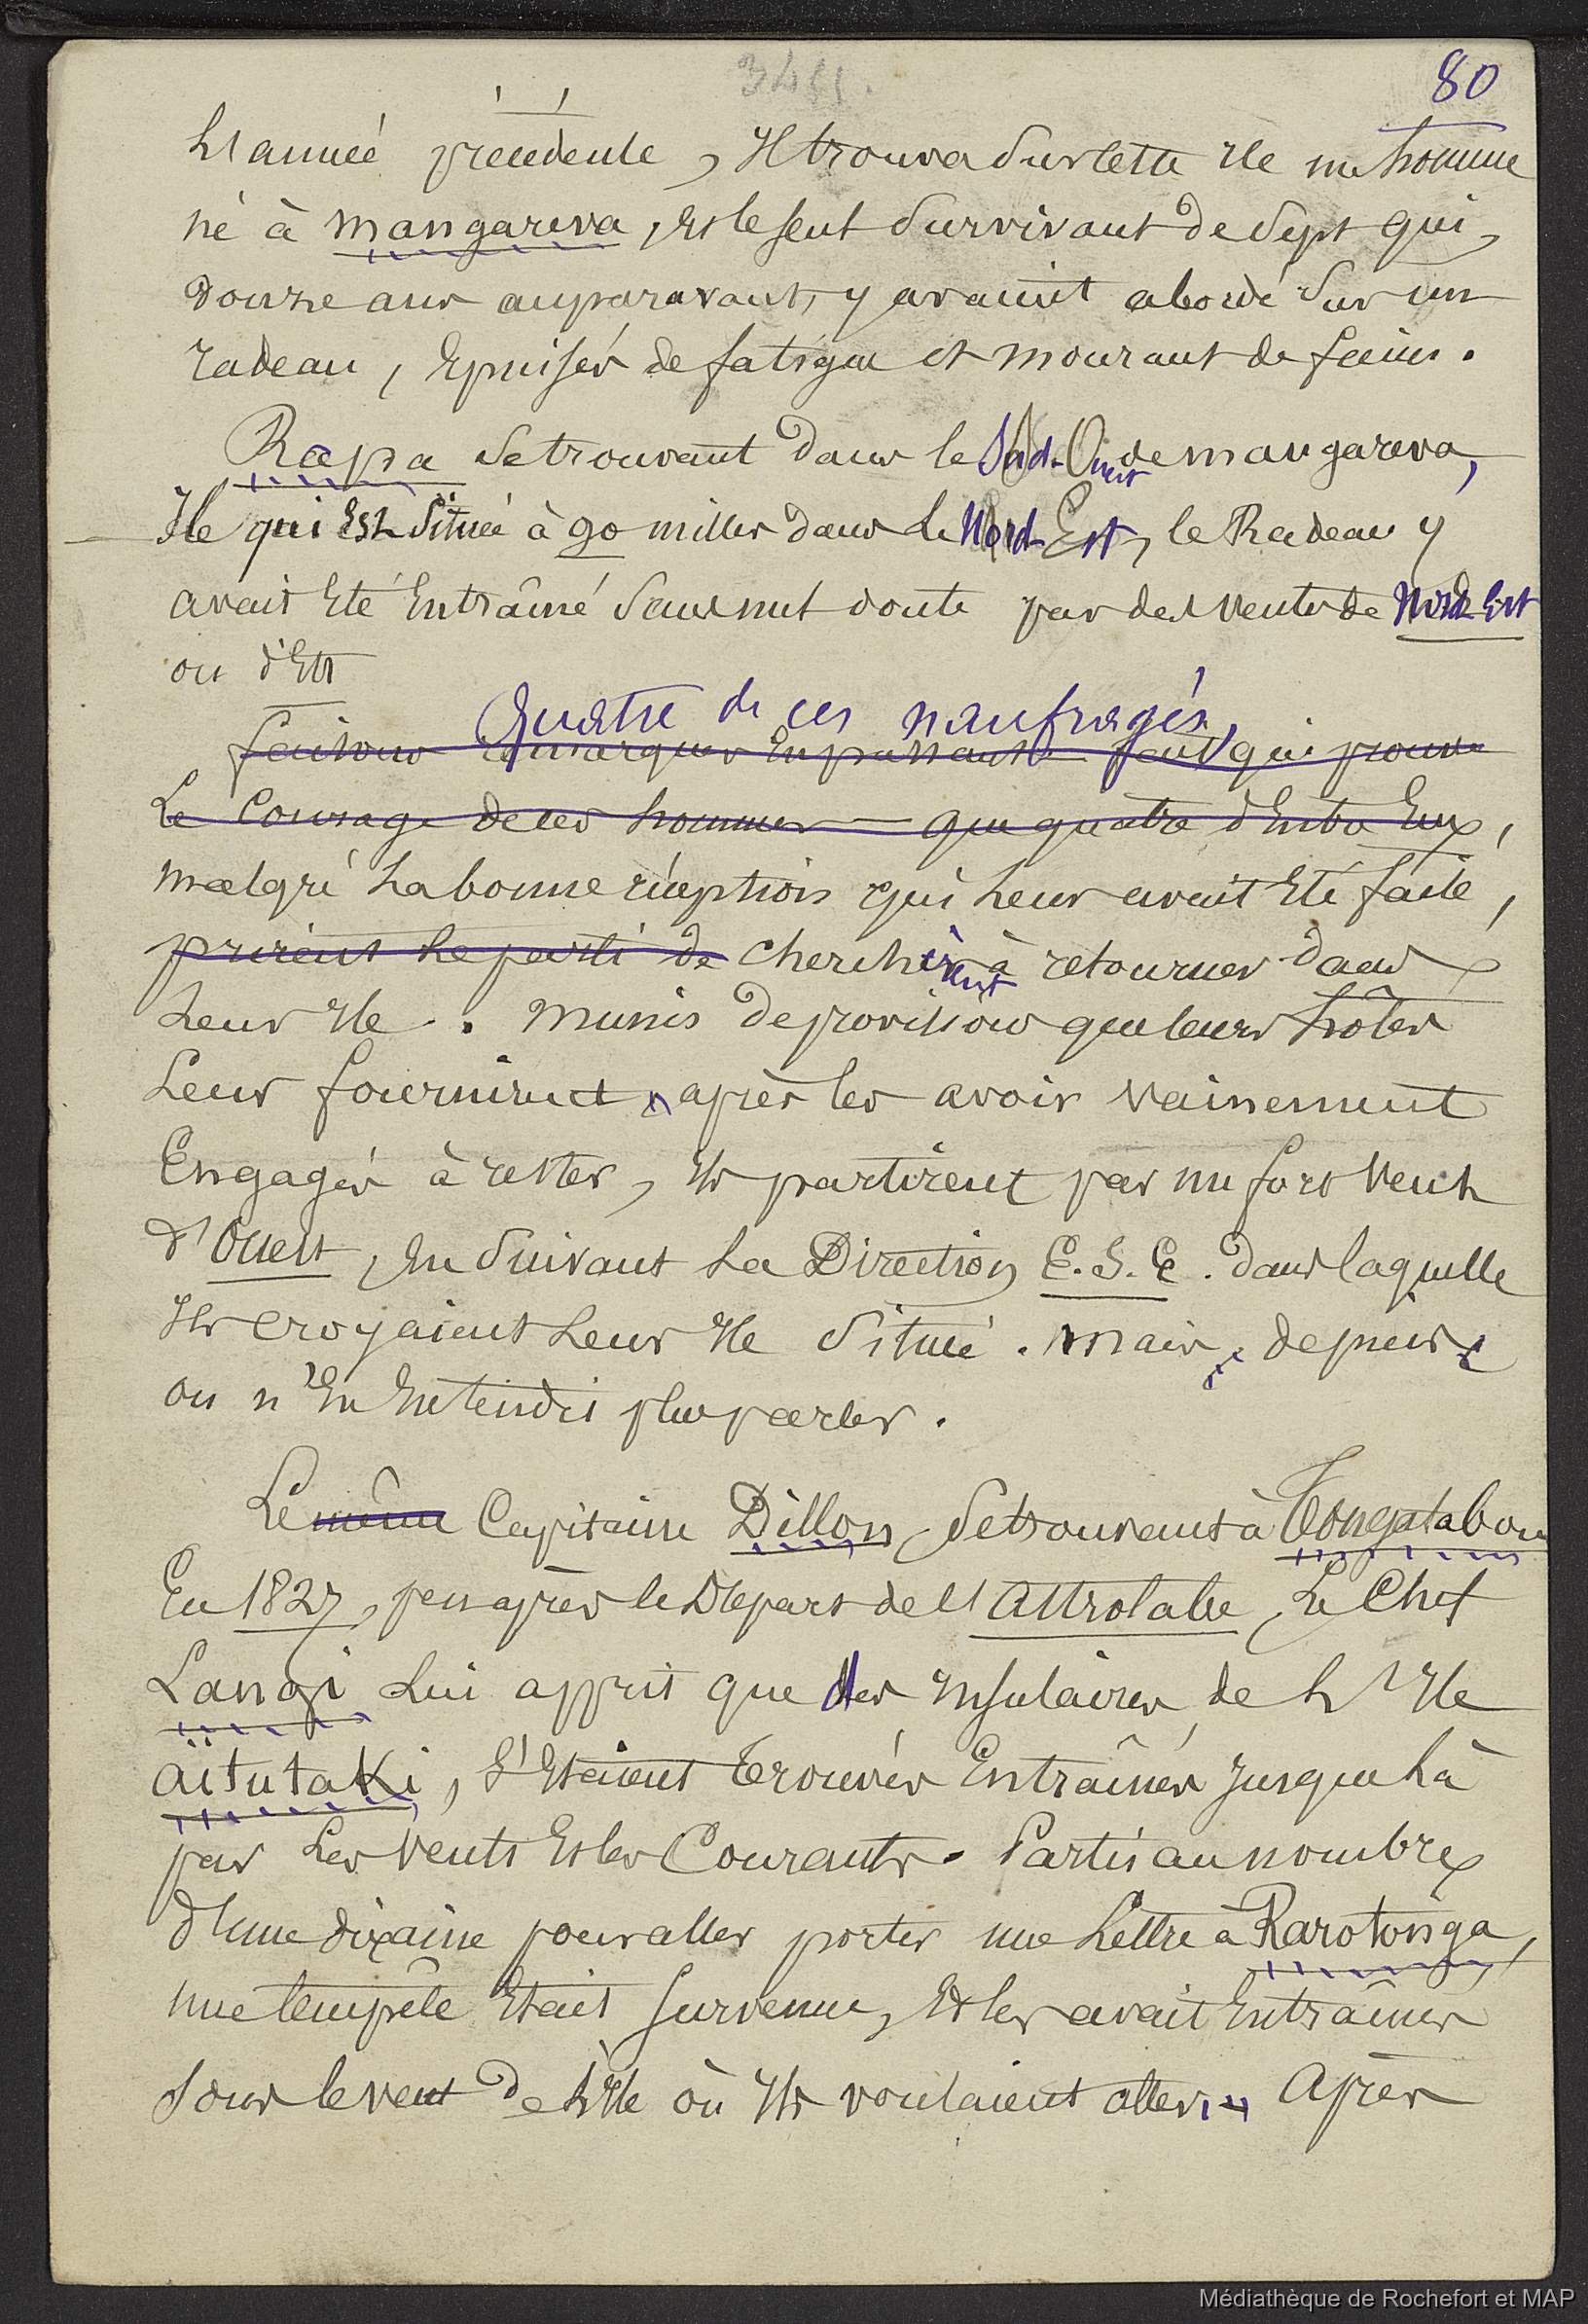 3411.
80
L'année précédente, Il trouva sur cette Ile un homme
né à Mangareva, et le seul survivant de sept qui,
douze ans auparavant, y avaient abordé sur un
radeau, Epuisés de fatigue et mourant de faim.
Rapa se trouvant dans le Sud-Ouest de mangareva,
Ile qui Est Située à 90 milles dans le Nord Est, le Radeau y
avait Eté Entraîné sans nul doute par des vents de Nord Est
ou d'Est
Quatre de ces naufragés,
faisons remarquer En passant fait qui prouve
Le Courage de ces hommes — que quatre d'Entre Eux,
malgré La bonne réception qui Leur avait Eté faite,
prirent Le parti de cherchèrent à retourner dans
Leur Ile. Munis de provisions que leurs hôtes
Leur fournirent, après les avoir vainement
Engagés à rester, Ils partirent par un fort Vent
d'Ouest, En suivant La Direction E.S.E. dans laquelle
Ils croyaient Leur Ile Située. Mais, depuis,
on n'En Entendit plus parler.
Le même Capitaine Dillon, se trouvant à Tongatabou
En 1827, peu après le Départ de l'Astrolabe, Le Chef
Langi Lui apprit que des Insulaires de L'Ile
aïtutaki, s'Etaient trouvés Entraînés Jusque Là
par Les Vents Et les Courants. Partis au nombre
d'une dixaine pour aller porter une Lettre à Rarotonga,
une tempête Etait survenue, Et les avait Entraînés
sous le vent de L'Ile où Ils voulaient aller. Après
Médiathèque de Rochefort et MAP